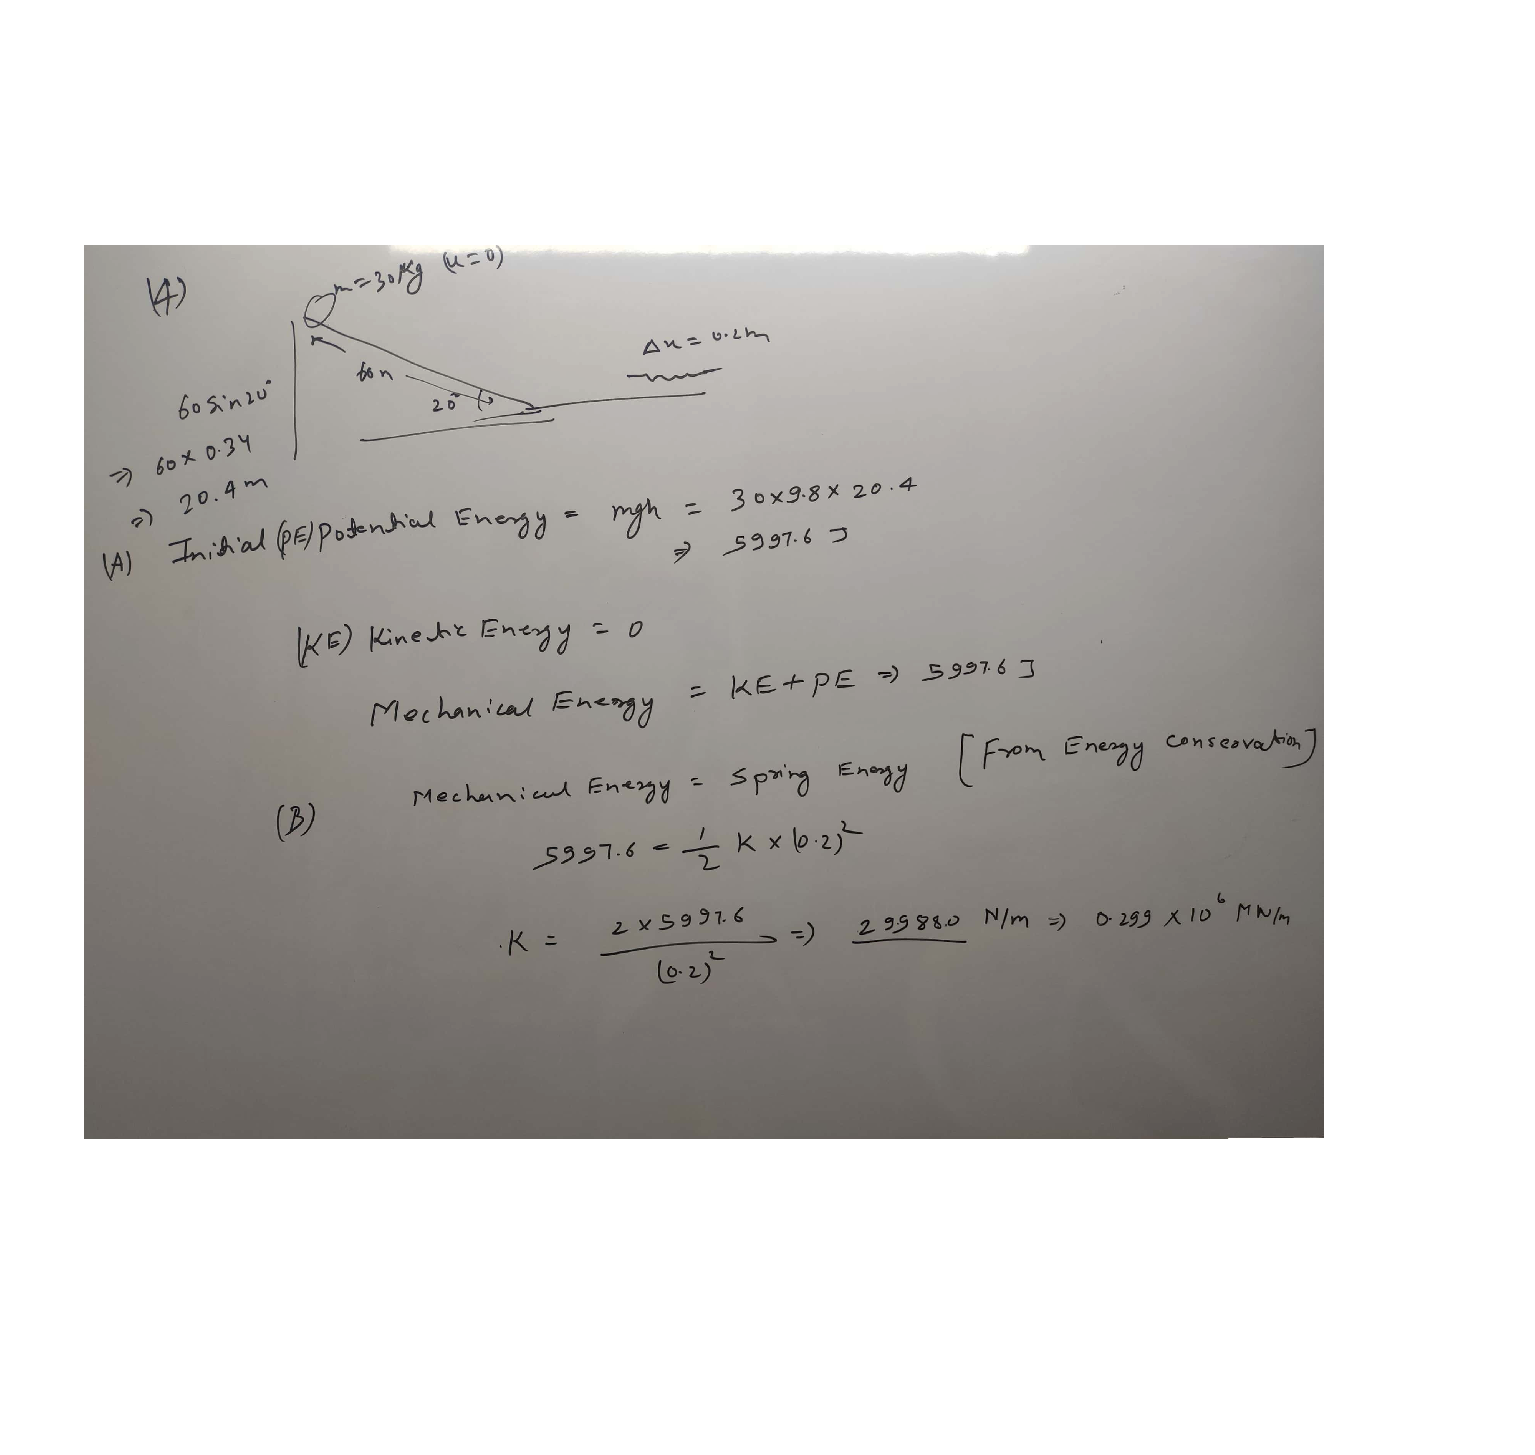 (4)
m=30Kg (u=0)
Δx = 0.2m
60m
20°
60 Sin20°
⇒ 60 x 0.34
⇒ 20.4m
(A) Initial (PE) Potential Energy = mgh = 30x9.8x 20.4
⇒ 5997.6 J
(KE) Kinetic Energy = 0
Mechanical Energy = KE + PE ⇒ 5997.6 J
(B) Mechanical Energy = Spring Energy [From Energy conservation]
5997.6 = 1/2 K x (0.2)²
K = 2 x 5997.6 / (0.2)² ⇒ 299880 N/m ⇒ 0.299 x 10⁶ MN/m